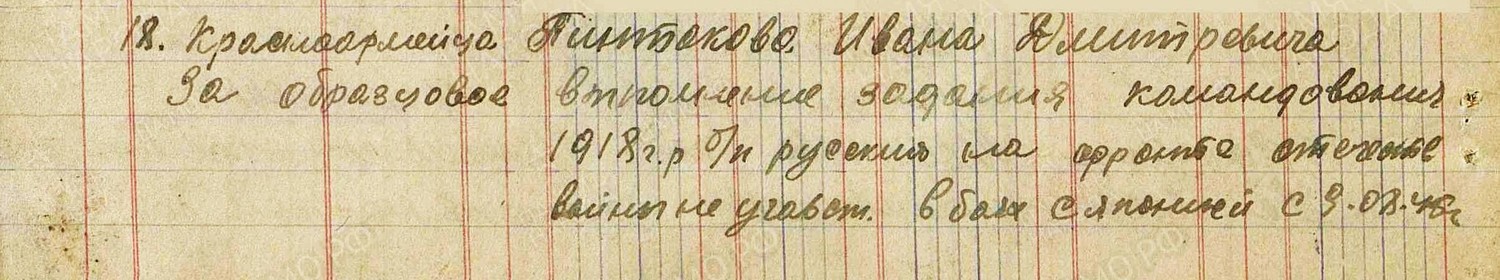 18. Красноармейца Пинтакова Ивана Дмитревича
За образцовое выполнение задания командования
1918 г.р б/п русский на фронте отечеств
войны не участ. в боях с японией с 9.08.45г